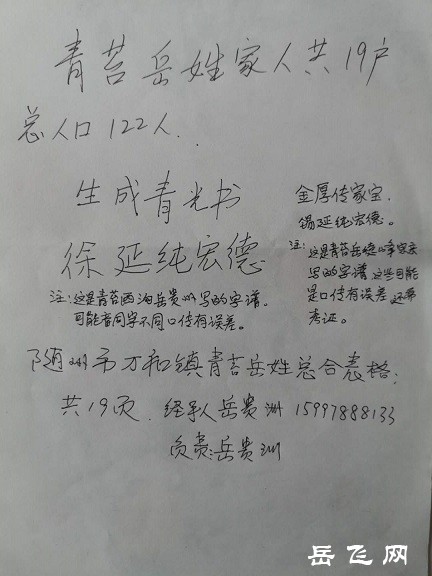 青苔岳姓家人共19户
总人口122人.
生成青光书
徐延纯宏德
注:这是青苔西沟岳贵州写的字谱.
可能音同字不同口传有误差。
金厚传家宝,
锡延纯宏德。
注:这是青苔岳 家 写的字谱 这些可能
是口传有误差 还需
考证。
随州市万和镇青苔岳姓总合表格:
共19页. 经手人岳贵洲 15997888133
负责:岳贵洲
岳飞网